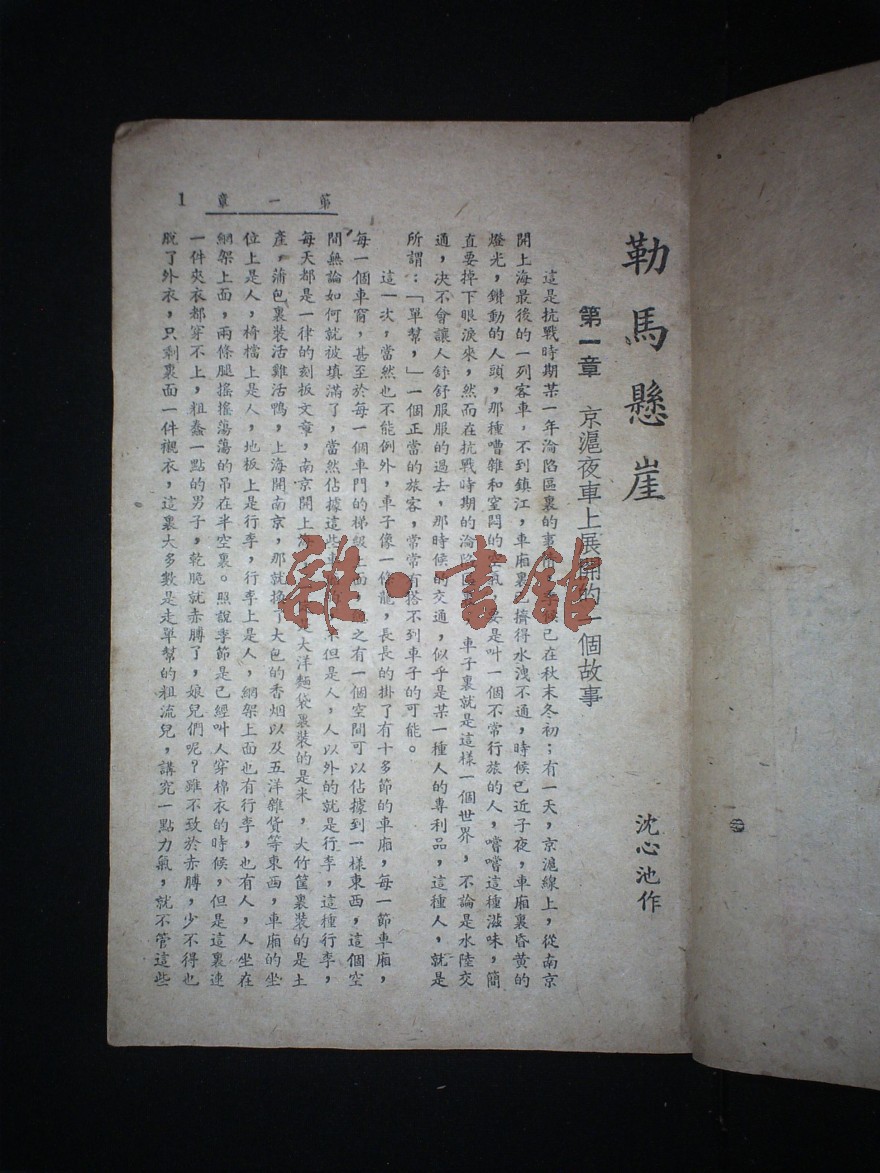 勒馬懸崖
沈心池作
第一章 京滬夜車上展開的一個故事
這是抗戰時期某一年淪陷區裏的事候已在秋末冬初;有一天,京滬線上,從南京
開上海最後的一列客車,不到鎮江,車廂裏已擠得水洩不通,時候已近子夜,車廂裏昏黃的
燈光,鑽動的人頭,那種嘈雜和窒悶的空氣,要是叫一個不常行旅的人,嚐嚐這種滋味,簡
直要掉下眼淚來,然而在抗戰時期的淪陷車子裏就是這樣一個世界,不論是水陸交
通,決不會讓人舒舒服服的過去,那時候的交通,似乎是某一種人的專利品,這種人,就是
所謂:「單幫,」一個正當的旅客,常常有搭不到車子的可能。
這一次,當然也不能例外,車子像一條龍,長長的掛了有十多節的車廂,每一節車廂,
每一個車窗,甚至於每一個車門的梯級上面之有一個空間可以佔據到一樣東西,這個空
間無論如何就被填滿了,當然佔據這些車但是人,人以外的就是行李,這種行李,
每天都是一律的刻板文章,南京開上海大洋麵袋裏裝的是米,大竹筐裏裝的是土
產,蒲包裏裝活雞活鴨,上海開南京,那就換了大包的香烟以及五洋雜貨等東西,車廂的坐
位上是人,椅檔上是人,地板上是行李,行李上是人,網架上面也有行李,也有人,人坐在
網架上面,兩條腿搖搖蕩蕩的吊在半空裏。照說季節是已經叫人穿棉衣的時候,但是這裏連
一件夾衣都穿不上,粗蠢一點的男子,乾脆就赤膊了,娘兒們呢?雖不致於赤膊,少不得也
脫了外衣,只剩裏面一件襯衣,這裏大多數是走單幫的粗流兒,講究一點力氣,就不管這些
第一章
1
雜·書舘